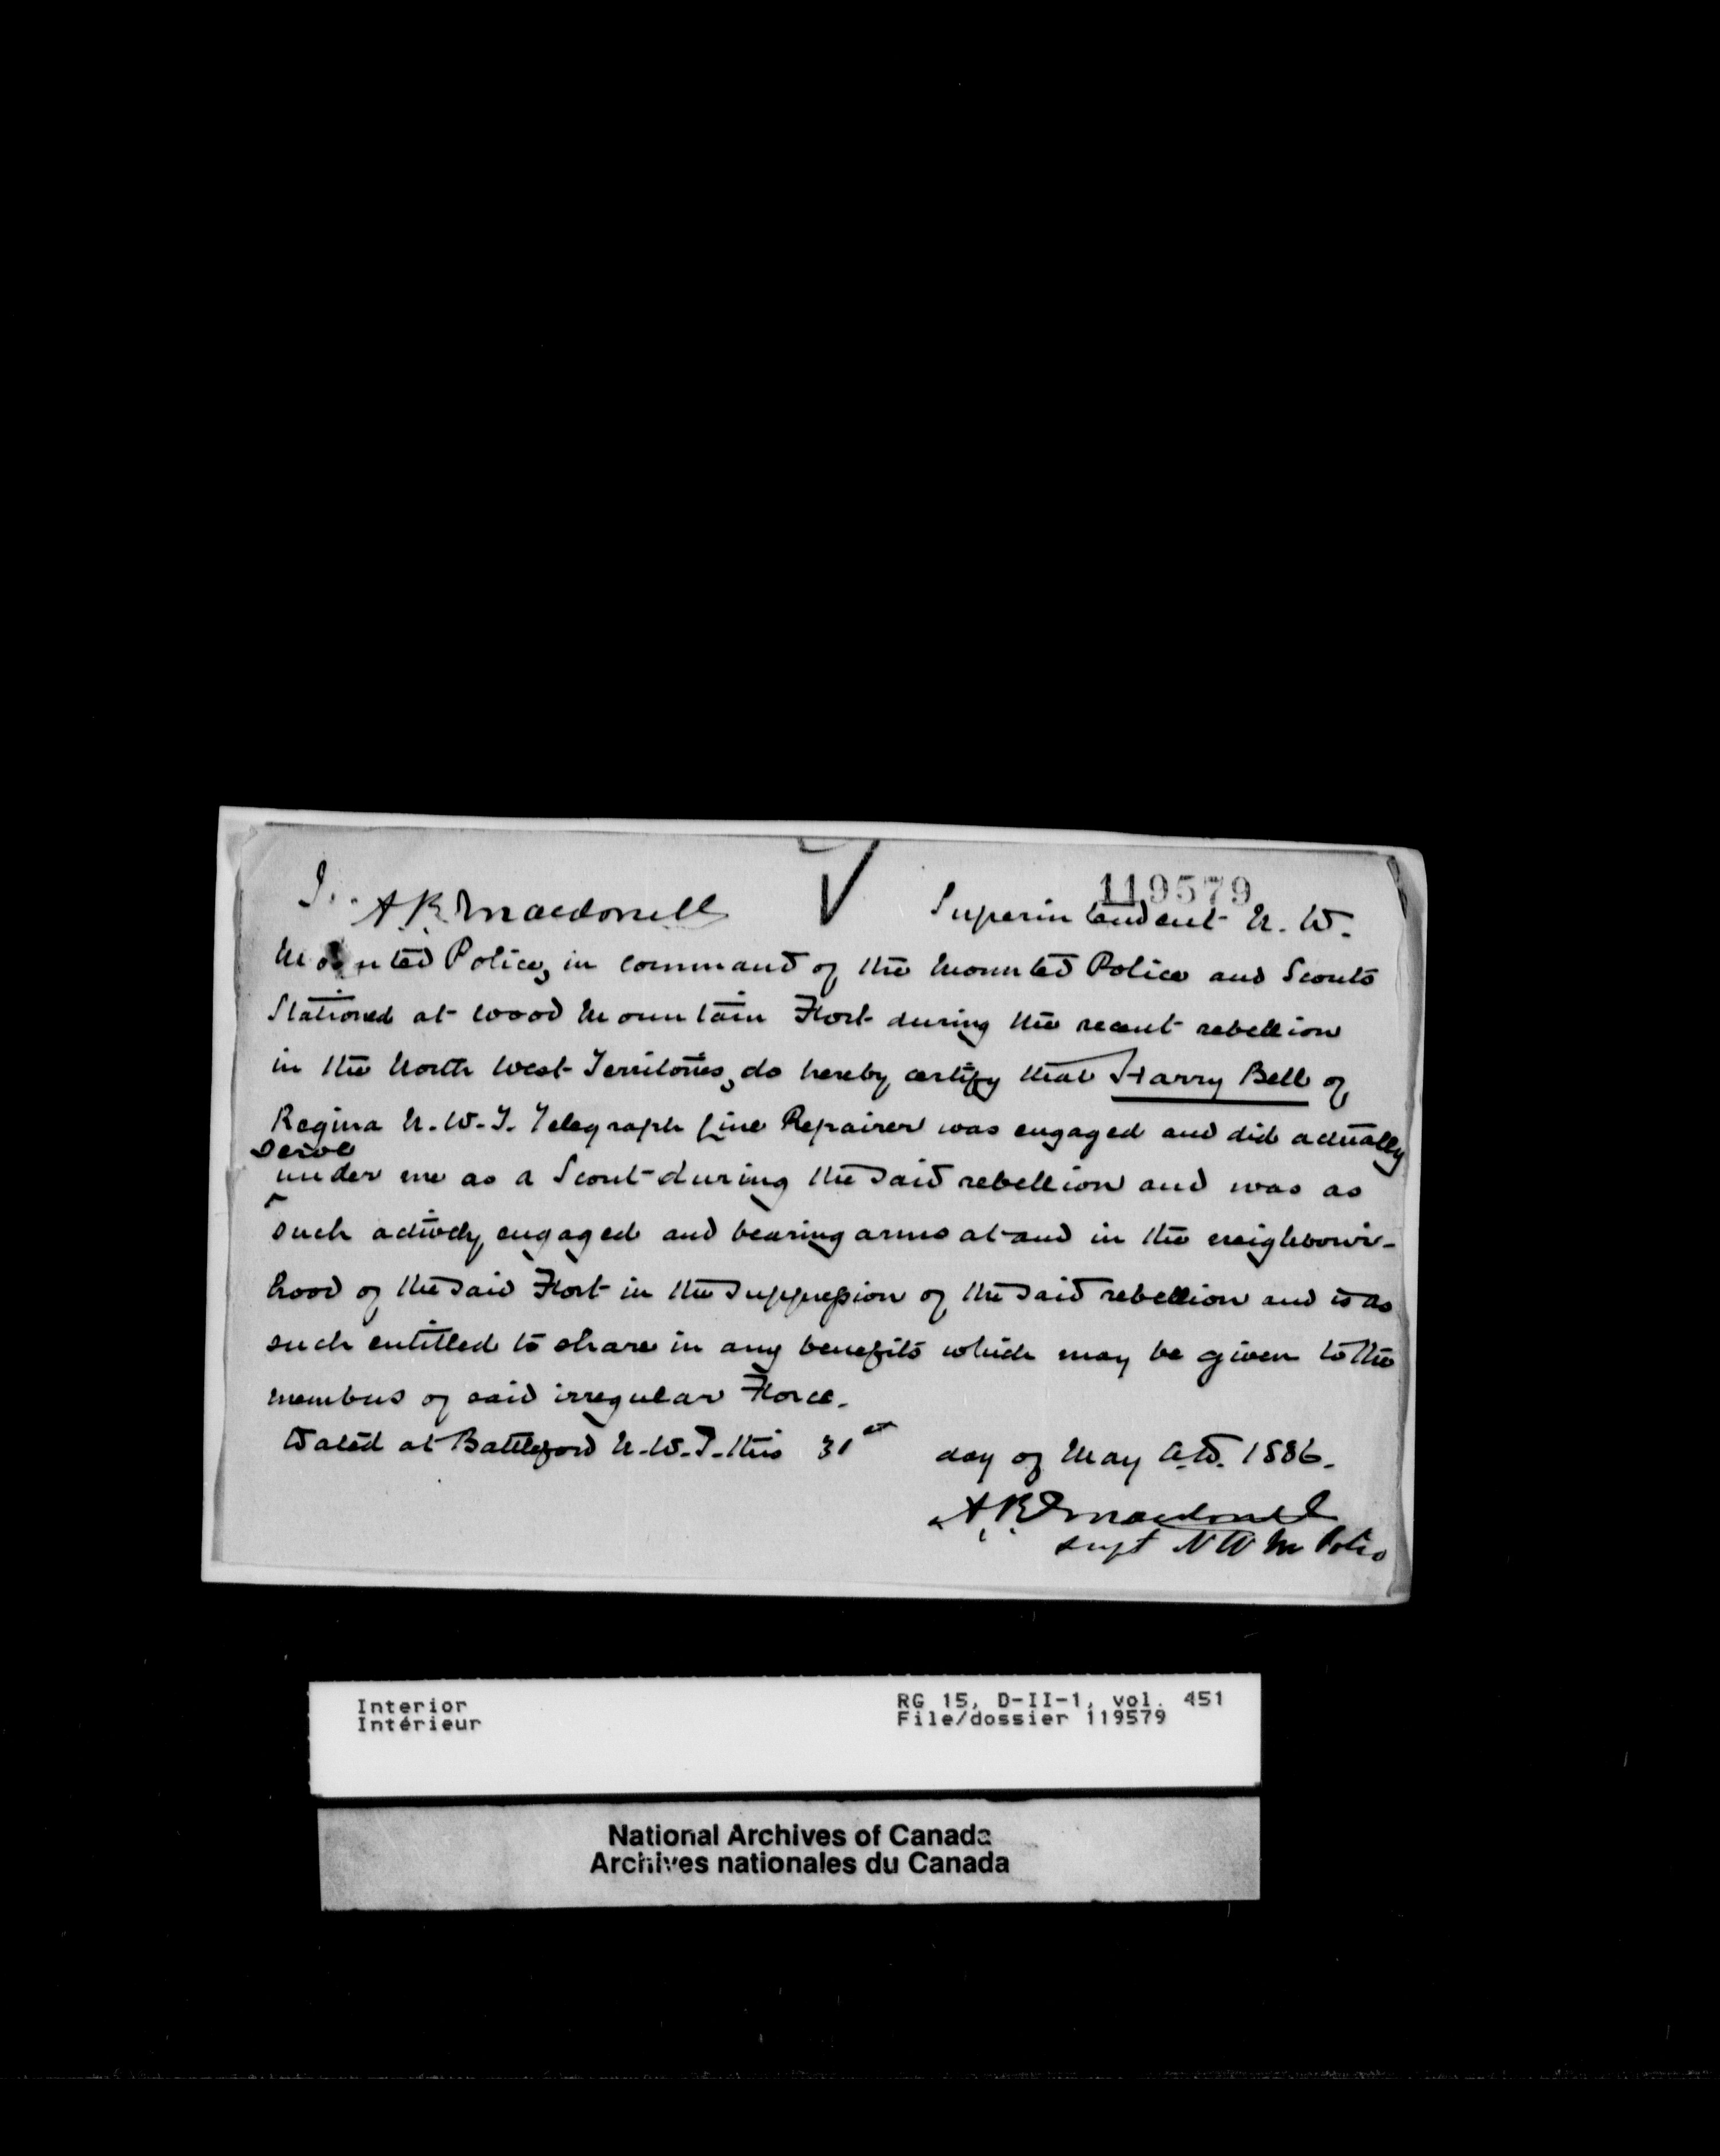 119579
I, A. R. Macdonell Superintendent N. W.
Mounted Police, in command of the Mounted Police and Scouts
Stationed at Wood Mountain Fort during the recent rebellion
in the North West Territories, do hereby certify that Harry Bell of
Regina N. W. T. Telegraph Line Repairer was engaged and did actually
serve
under me as a Scout during the said rebellion and was as
such actively engaged and bearing arms at and in the neighbour-
hood of the said Fort in the suppression of the said rebellion and is as
such entitled to share in any benefits which may be given to the
members of said irregular Force.
Dated at Battleford N. W. T. this 31st day of May A.D. 1886.
A. R. Macdonell
Supt N W M Police
Interior
Intérieur
RG 15, D-II-1, vol. 451
File/dossier 119579
National Archives of Canada
Archives nationales du Canada